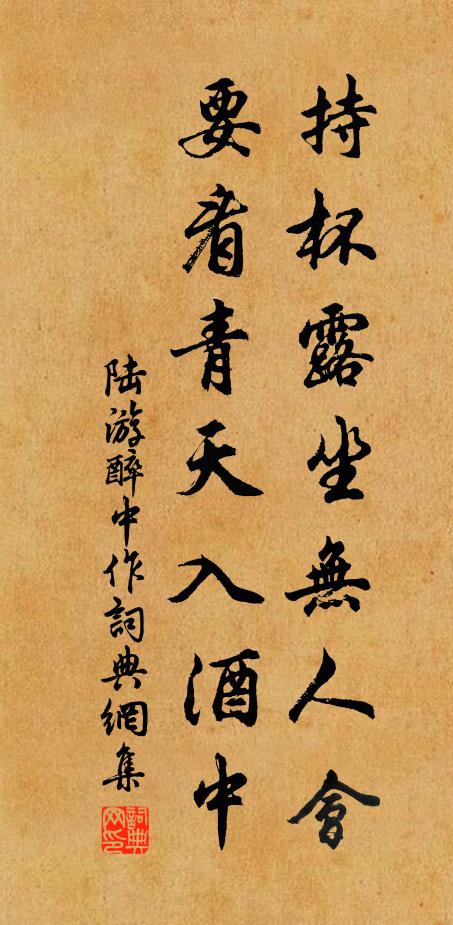 持杯露坐無人會
要看青天入酒中
陆游醉中作詞典網集
詞典网印